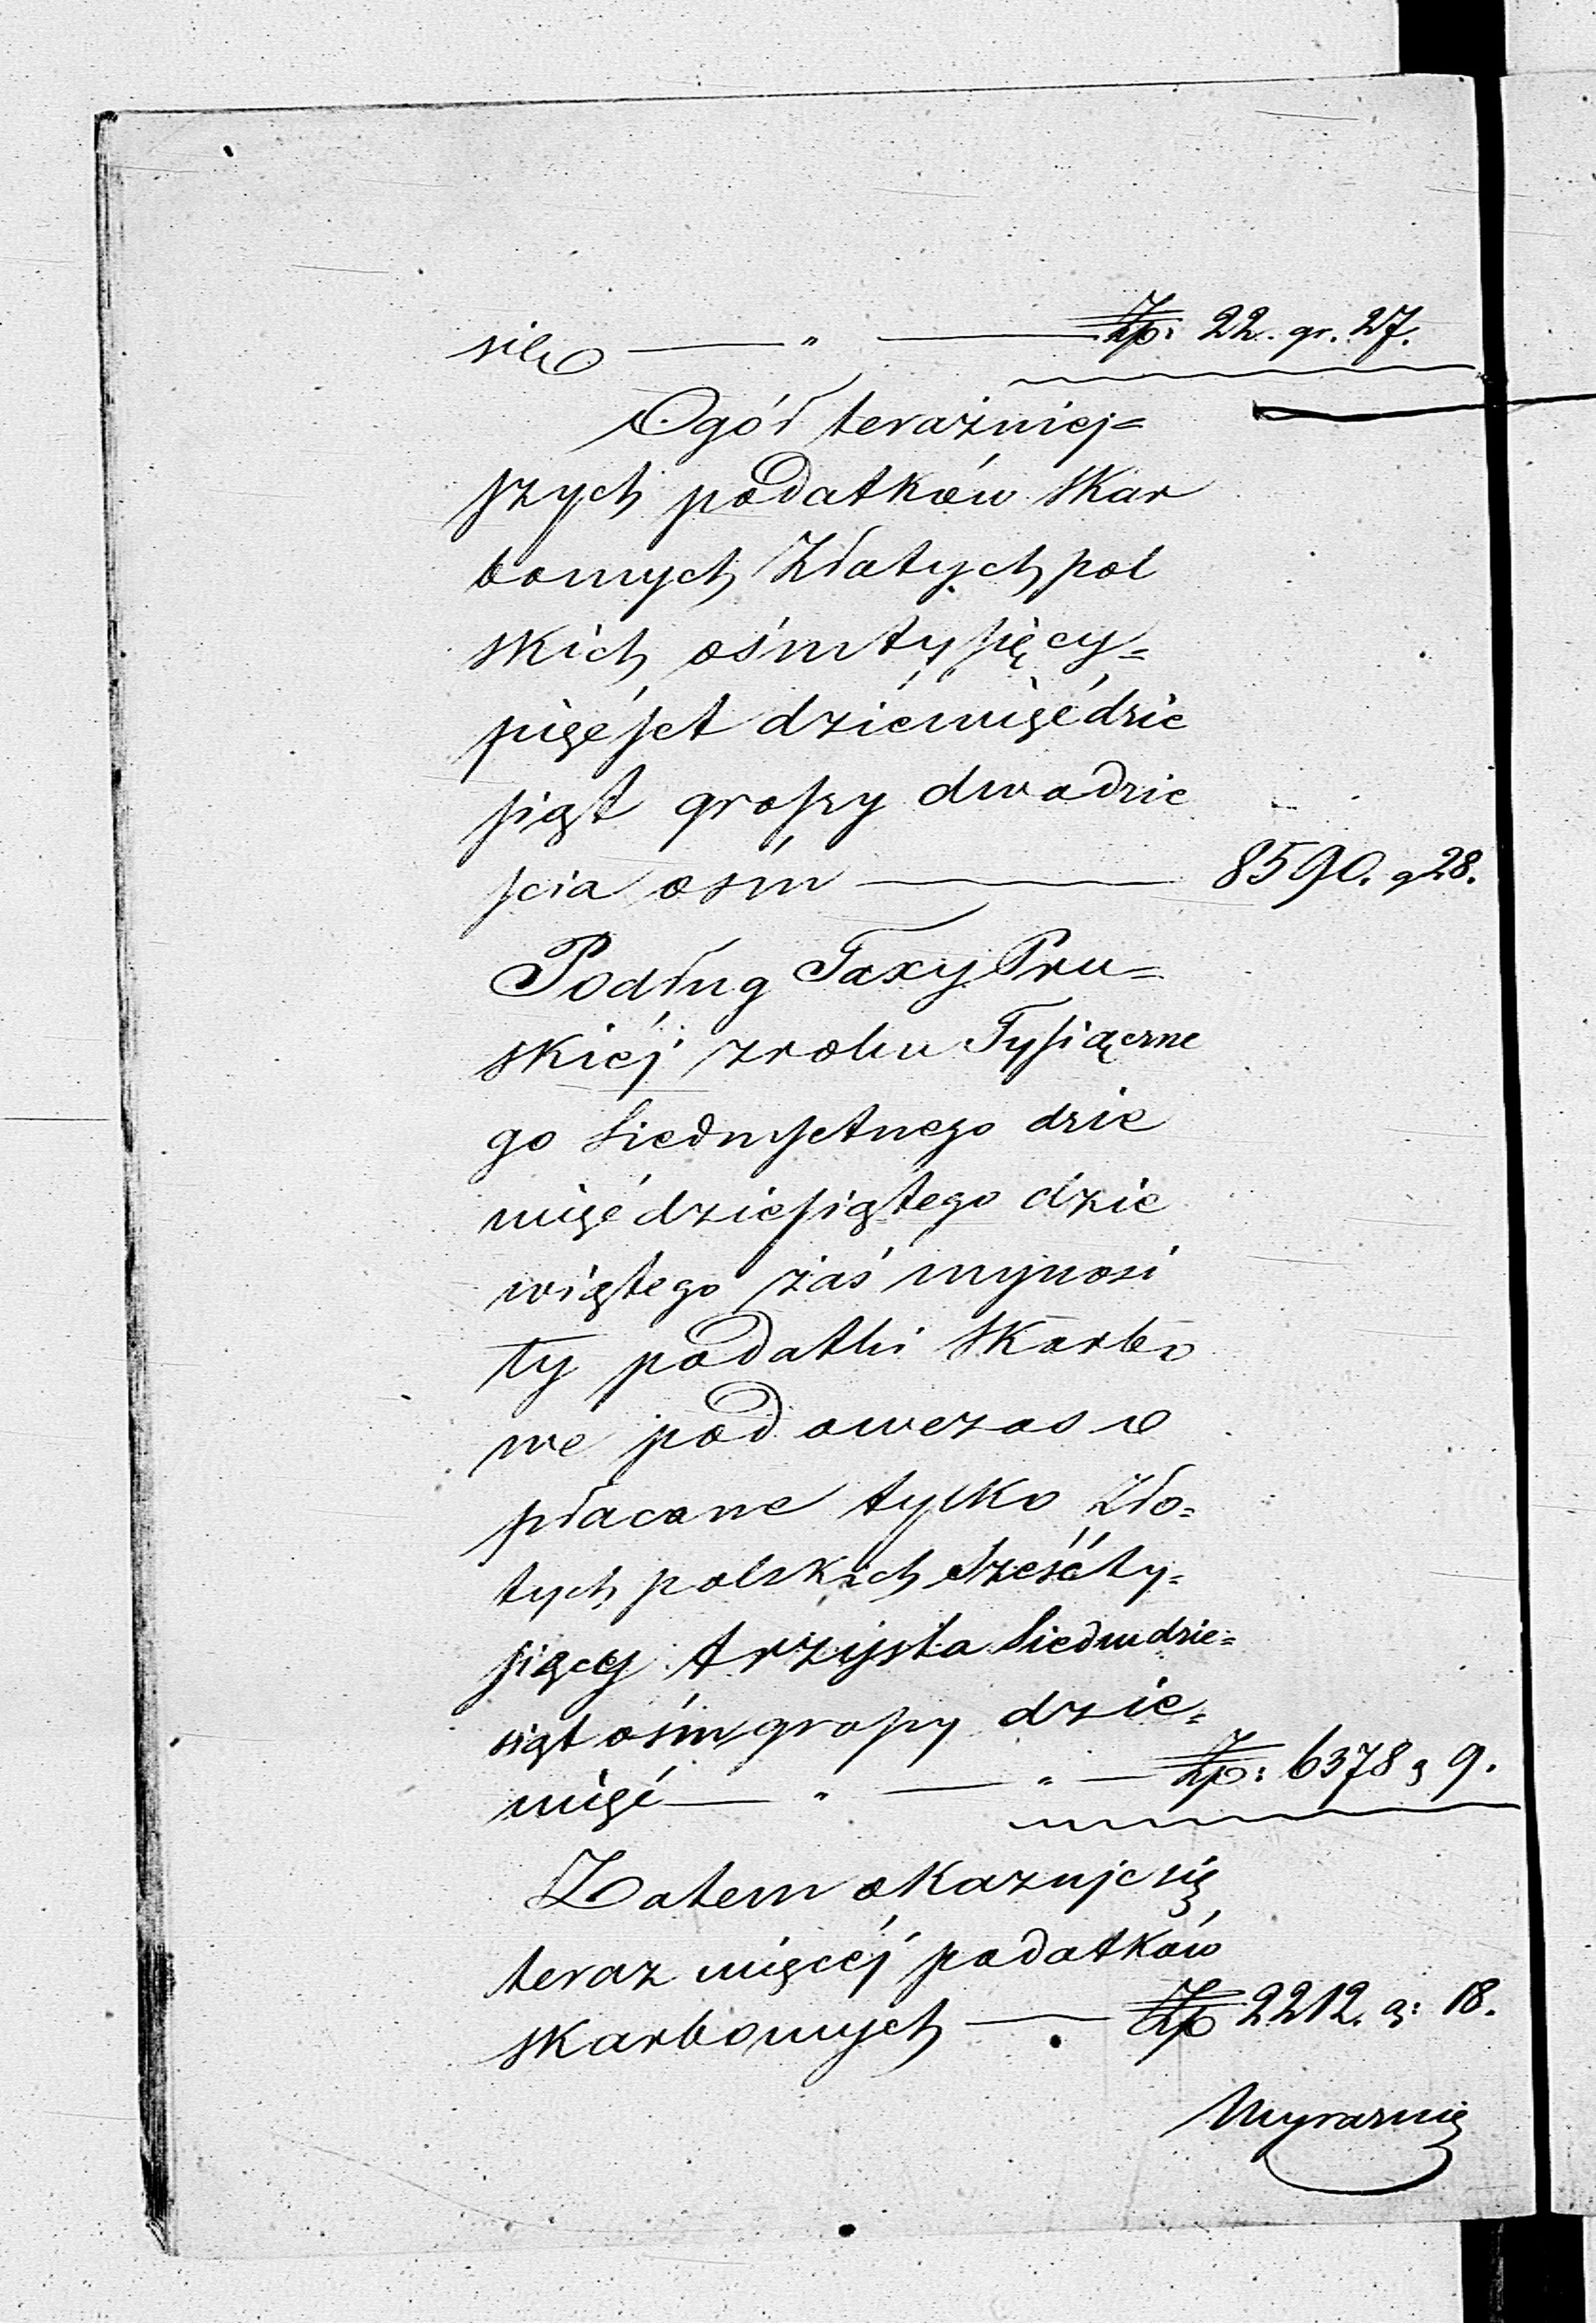 silę — " — Złp: 22. gr. 27.
Ogół teraźniej=
szych podatków skar
bowych Złotych pol
skich ośmtysięcy=
pięćset dziéwięćdzie
siąt groszy dwadzie
ścia ośm — 8590. g 28.
Podług Taxy Pru=
skiéj z roku Tysiączne
go Siedmsetnego dzie
więćdziesiątego dzie
wiątego zaś wynosi
ty podatki skarbo
we podówczas
płacone tylko Zło=
tych polskich Sześćty=
sięcy trzysta Siedmdzie=
siąt ośm groszy dzie=
więć — " — " — Złp: 6378 g 9.
Zatem okazuje się
teraz więcéj podatków
skarbowych — Złp 2212. g: 18.
Wyraźnie